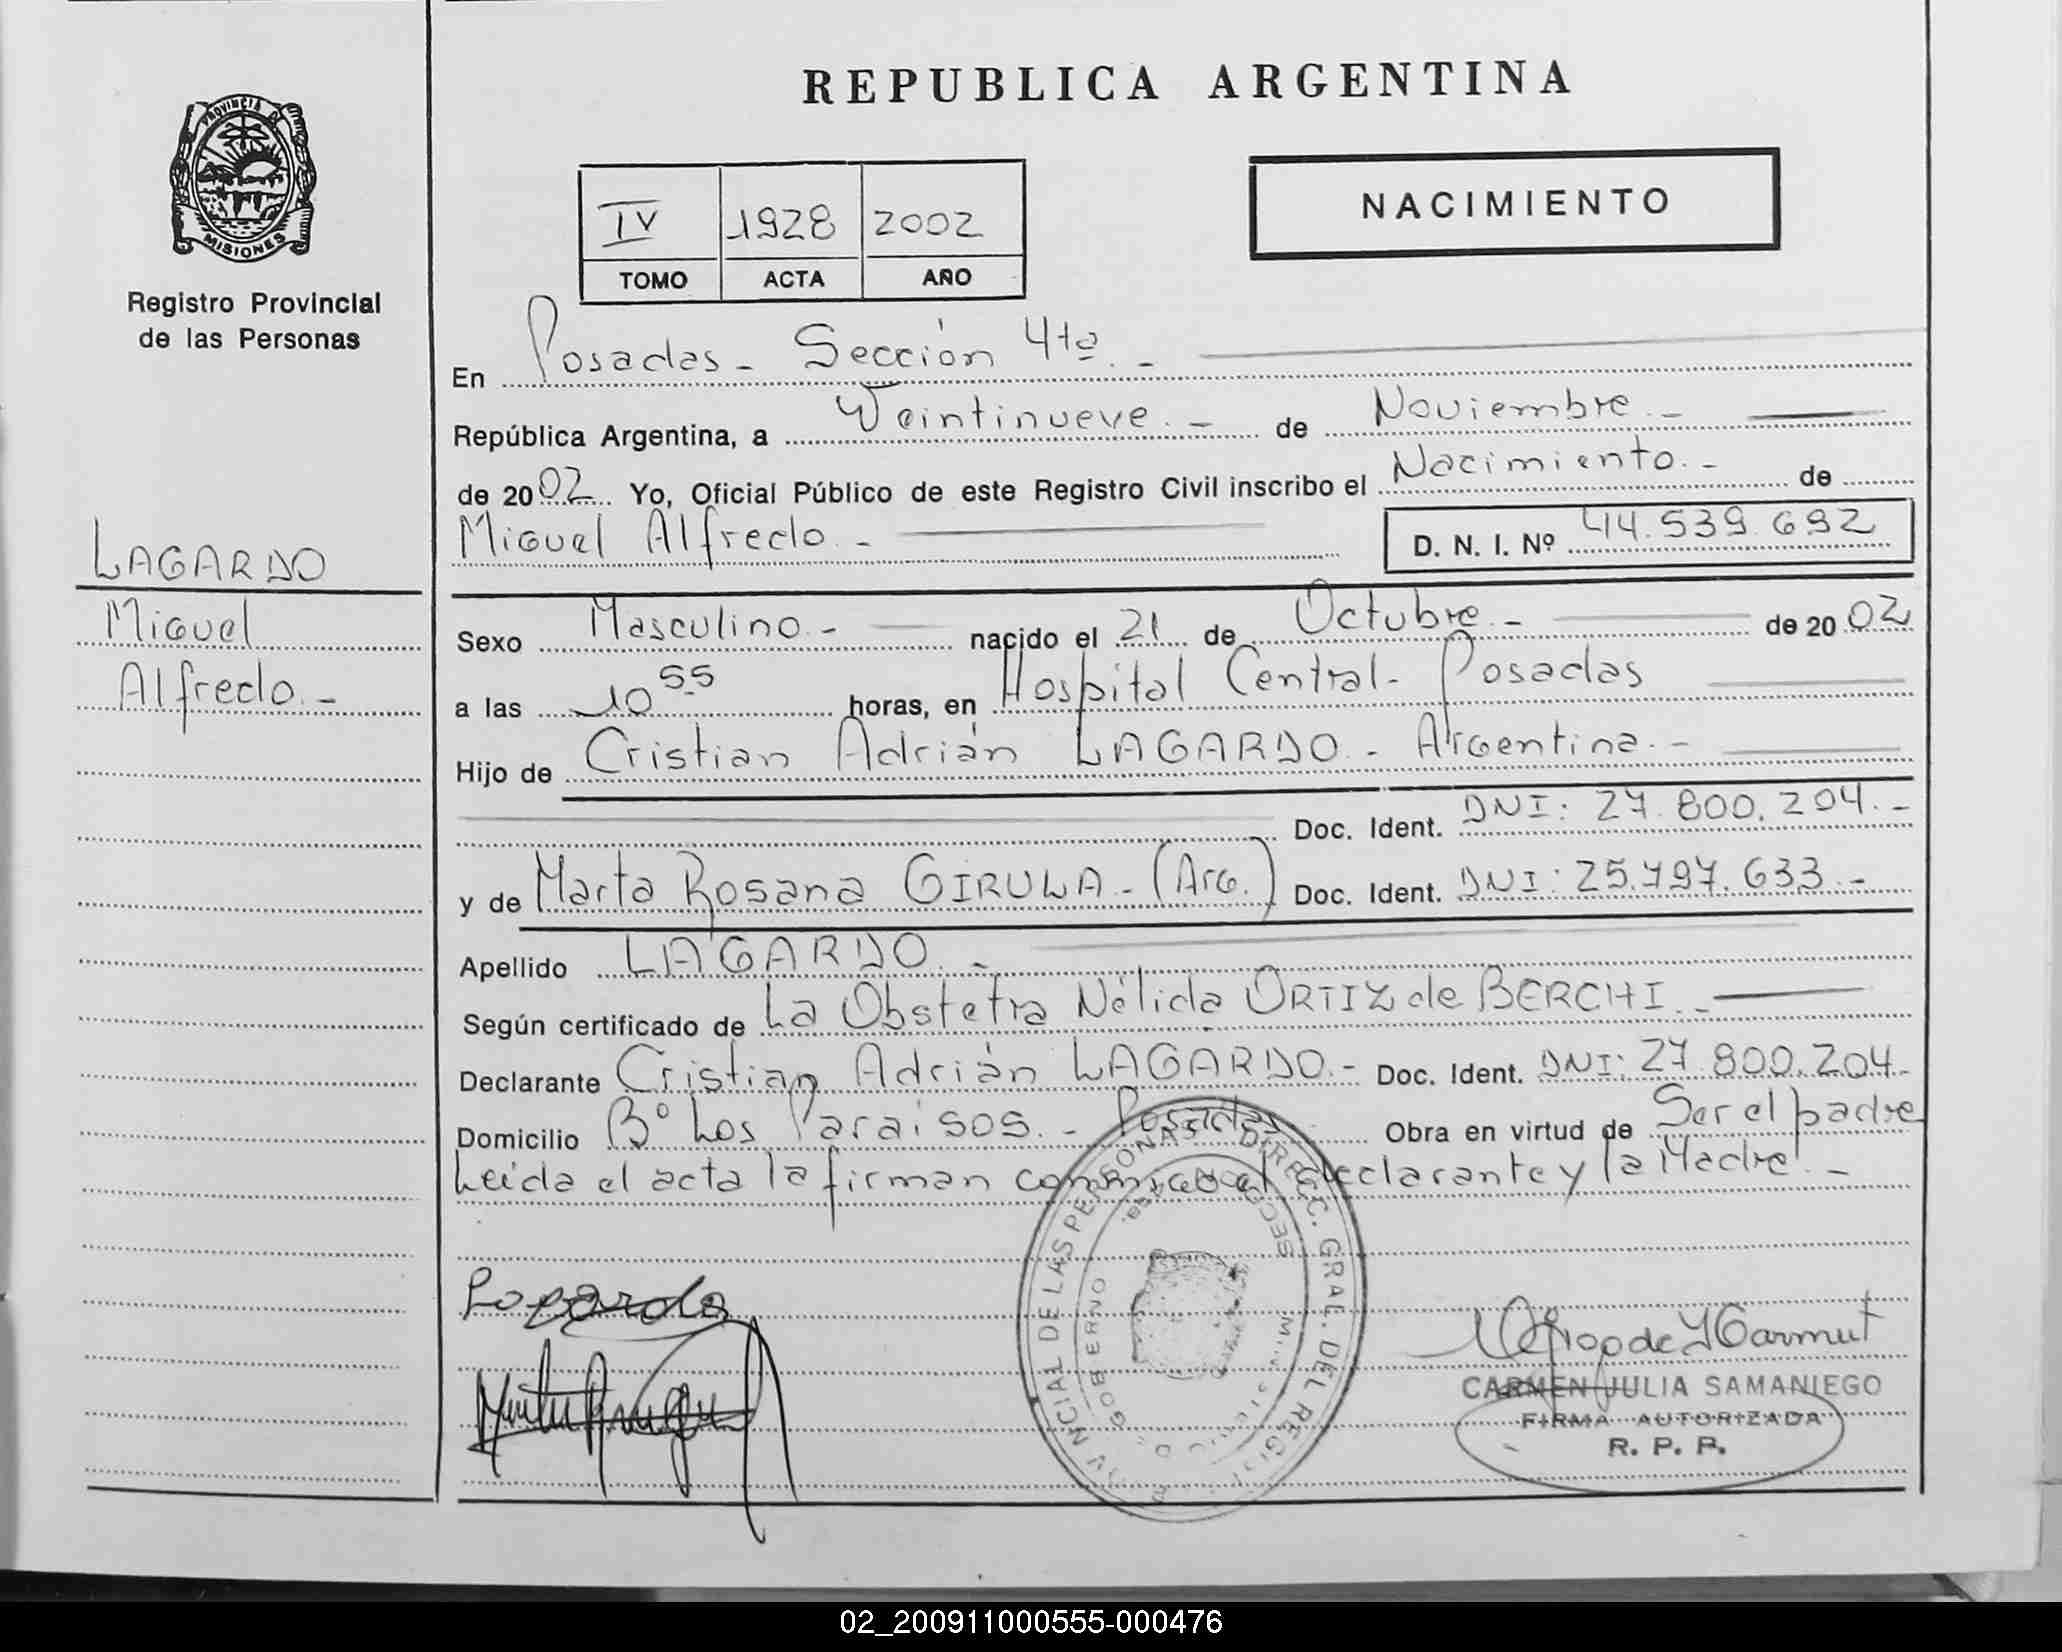 PROVINCIA DE
MISIONES
Registro Provincial
de las Personas
LAGARDO
Miguel
Alfredo.-
REPUBLICA ARGENTINA
IV 1928 2002
TOMO ACTA AÑO
NACIMIENTO
En Posadas - Sección 4ta.-
República Argentina, a Veintinueve.- de Noviembre.-
de 2002 Yo, Oficial Público de este Registro Civil inscribo el Nacimiento.- de
Miguel Alfredo.- D. N. I. Nº 44.539.692
Sexo Masculino.- nacido el 21 de Octubre.- de 2002
a las 10 55 horas, en Hospital Central- Posadas
Hijo de Cristian Adrián LAGARDO.- Argentina.-
Doc. Ident. DNI: 27.800.204.-
y de Marta Rosana GIRULA.- (Arg.) Doc. Ident. DNI: 25.797.633.-
Apellido LAGARDO.-
Según certificado de La Obstetra Nélida ORTIZ de BERCHI.-
Declarante Cristian Adrián LAGARDO.- Doc. Ident. DNI: 27.800.204.-
Domicilio Bº Los Paraisos.- Posadas Obra en virtud de Ser el padre
Leida el acta la firman conmigo el declarante y la Madre.-
CARMEN JULIA SAMANIEGO
FIRMA AUTORIZADA
R. P. P.
02_200911000555-000476